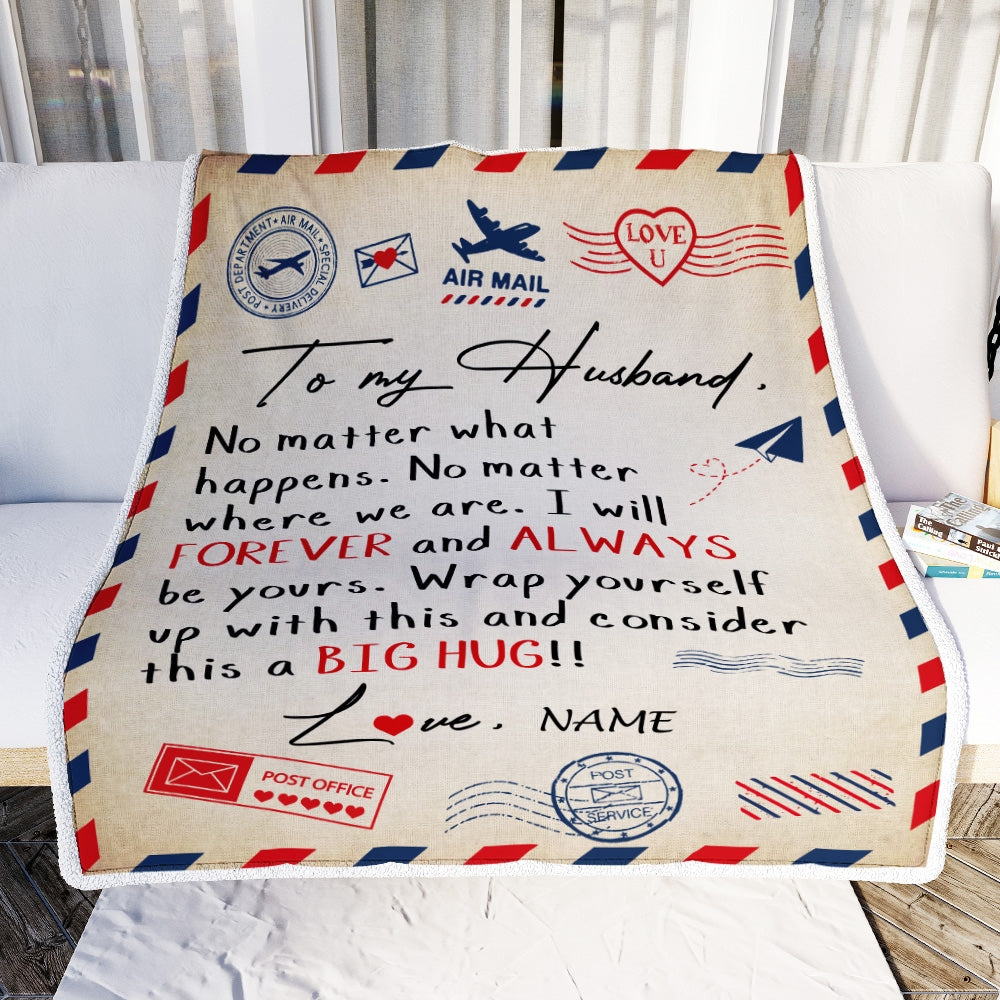 POST DEPARTMENT ★ AIR MAIL ★ SPECIAL DELIVERY ★
AIR MAIL
LOVE
U
To my Husband,
No matter what
happens. No matter
where we are. I will
FOREVER and ALWAYS
be yours. Wrap yourself
up with this and consider
this a BIG HUG!!
Love, NAME
POST OFFICE
POST
SERVICE
The
Calling